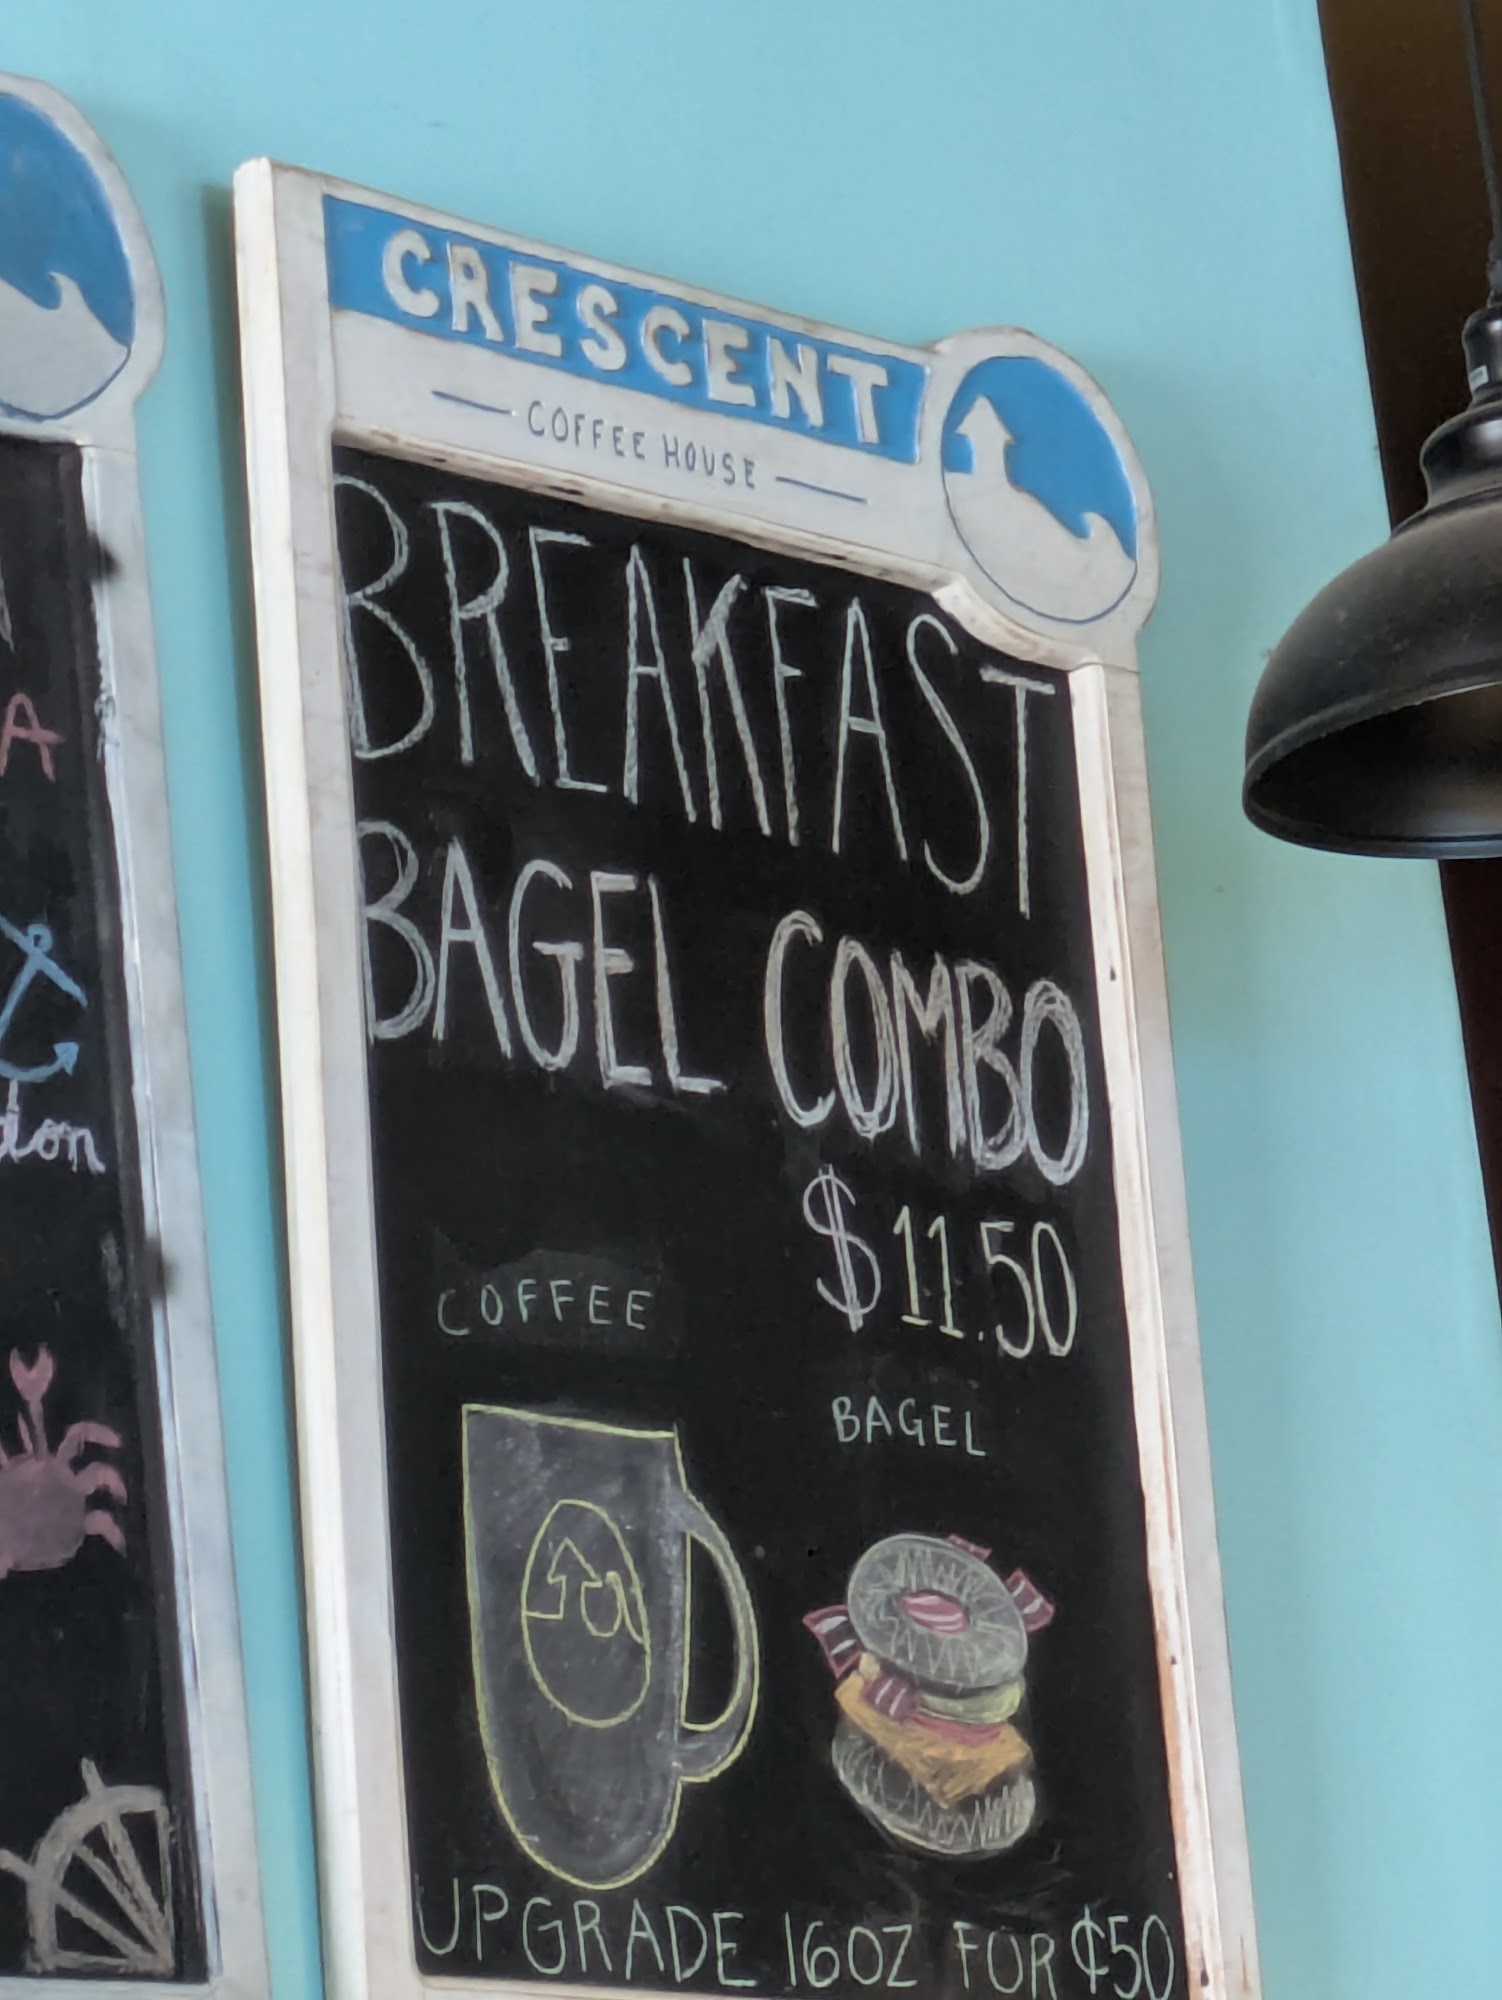 CRESCENT
COFFEE HOUSE
BREAKFAST
BAGEL COMBO
$11.50
COFFEE
BAGEL
UPGRADE 16OZ FOR ¢50